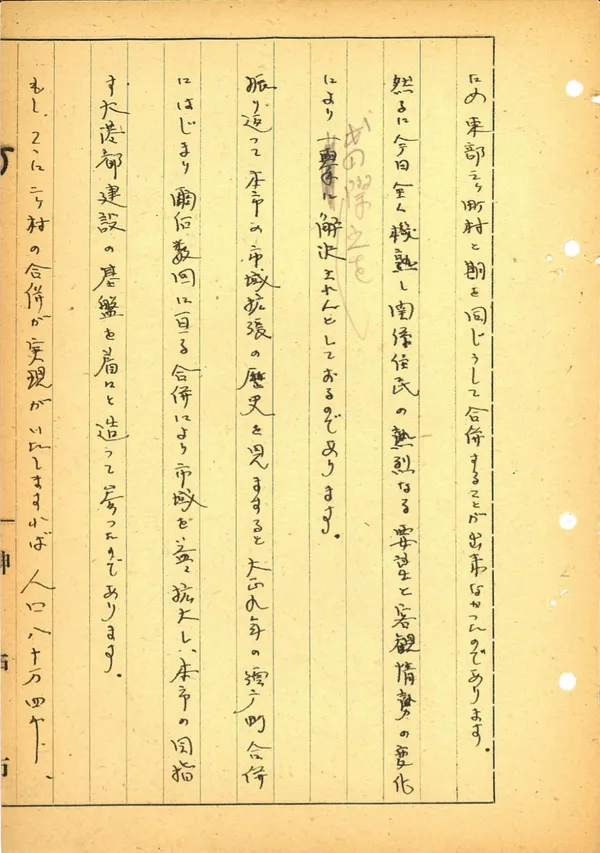 ため東部三ヶ町村と期を同じうして合併することが出来なかったのであります。
然るに今日全く機熟し関係住民の熱烈なる要望と客観情勢の変化
により 解決されんとしておるのであります。
振り返って本市の市域拡張の歴史を見ますると大正九年の須磨町合併
にはじまり爾后数回に亘る合併により市域を益々拡大し本市の目指
す大港都建設の基盤を着々と造って参ったのであります。
もし、ここに二ヶ村の合併が実現がいたしますれば人口八十万四千、
神
市